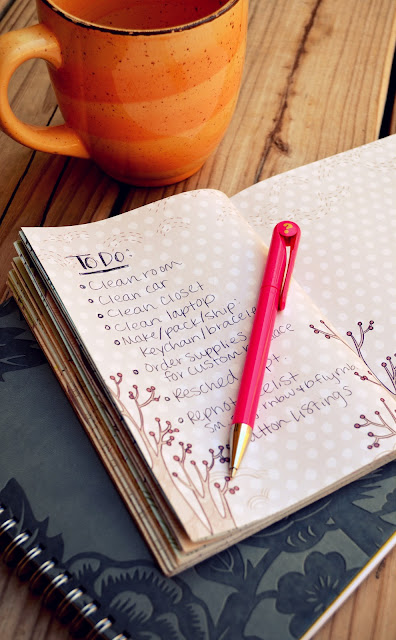 TO DO:
• Clean room
• Clean car
• Clean closet
• Clean laptop
• Make/pack/ship:
keychain/bracele
• Order supplies
for custom
• Resched pt.
• Repho elist
sm &
tton listings
?